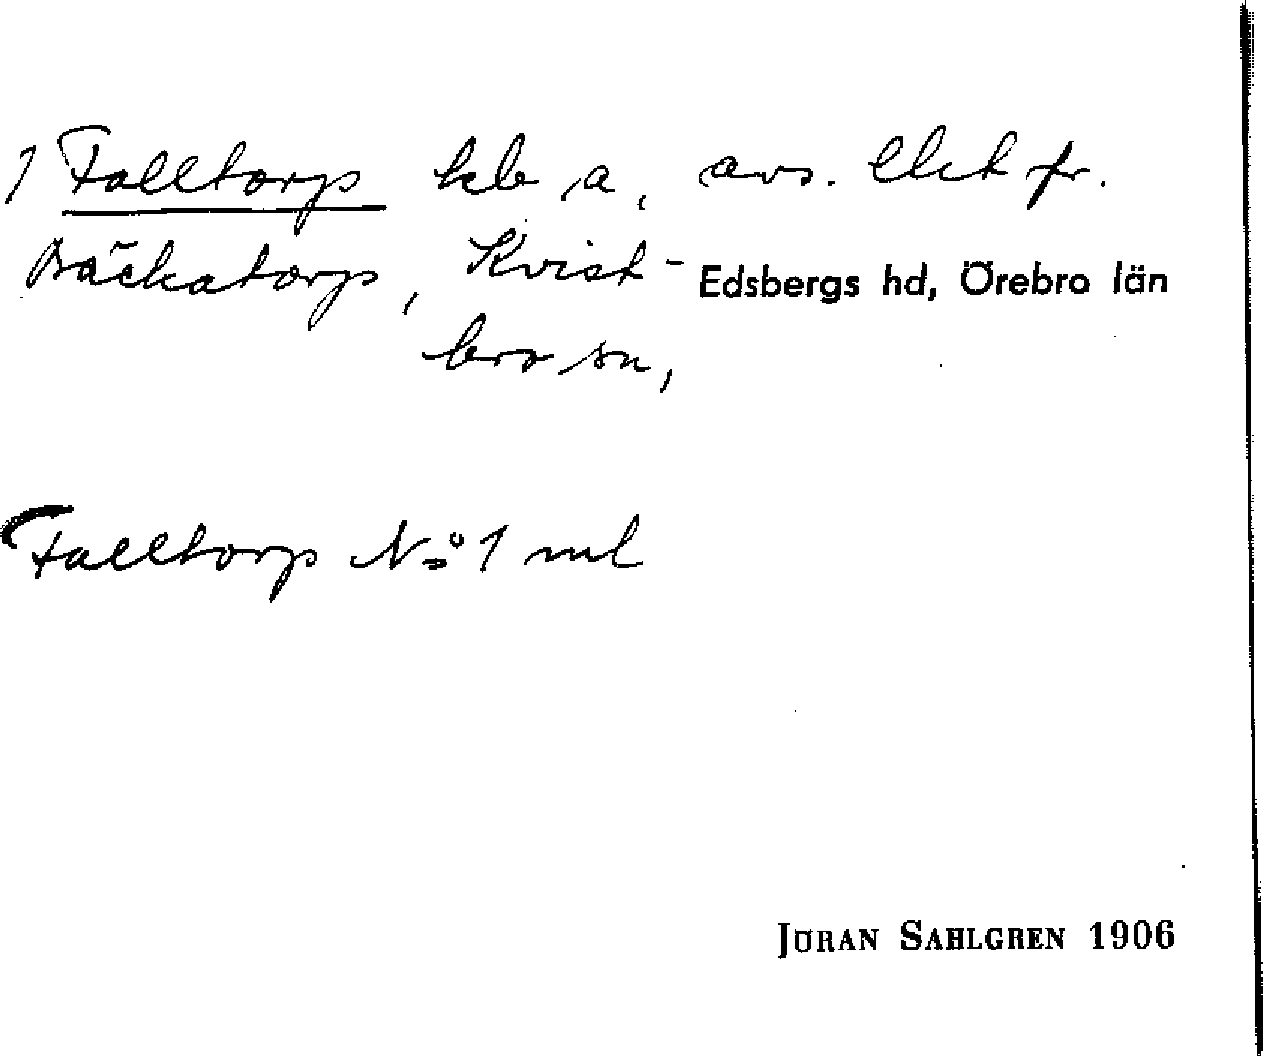 1 Falltorp hb a, avs. lht fr.
Bäckatorp, Kvist- Edsbergs hd, Örebro län
bro sn,
Falltorp No 1 ml
JÖRAN SAHLGREN 1906